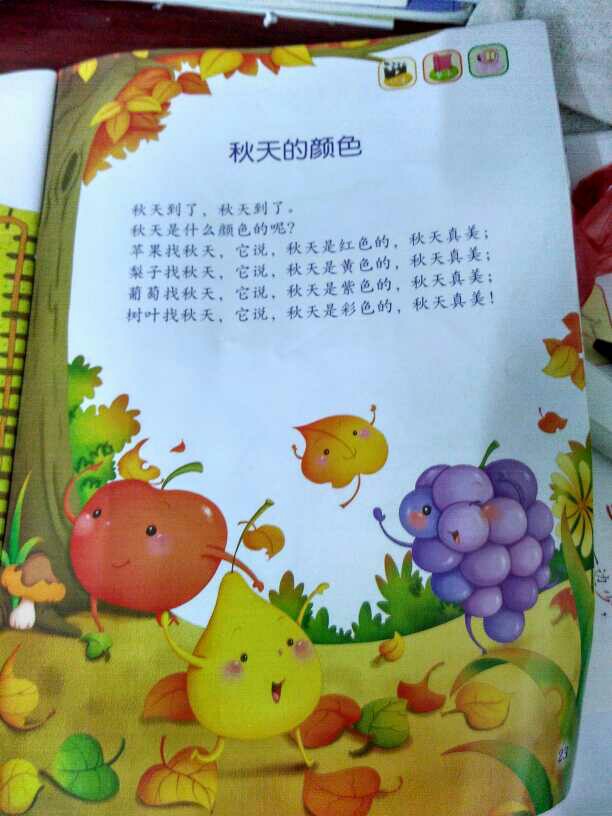 秋天的颜色
秋天到了，秋天到了。
秋天是什么颜色的呢？
苹果找秋天，它说，秋天是红色的，秋天真美；
梨子找秋天，它说，秋天是黄色的，秋天真美；
葡萄找秋天，它说，秋天是紫色的，秋天真美；
树叶找秋天，它说，秋天是彩色的，秋天真美！
23